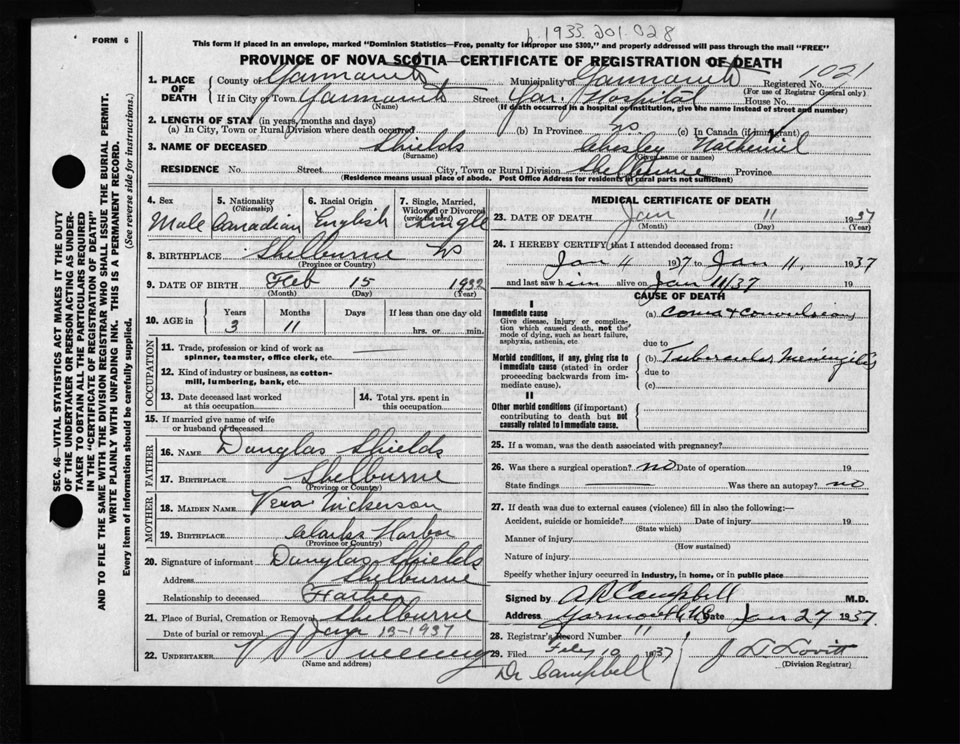 b. 1933.201.028
FORM 6
This form if placed in an envelope, marked "Dominion Statistics—Free, penalty for improper use $300," and properly addressed will pass through the mail "FREE"
PROVINCE OF NOVA SCOTIA—CERTIFICATE OF REGISTRATION OF DEATH
1. PLACE OF DEATH County of Yarmouth Municipality of Yarmouth Registered No. 1021
(For use of Registrar General only)
If in City or Town Yarmouth Street Yar. Hospital House No.
(Name) (If death occurred in a hospital or institution, give the name instead of street and number)
2. LENGTH OF STAY (in years, months and days)
(a) In City, Town or Rural Division where death occurred (b) In Province (c) In Canada (if immigrant)
3. NAME OF DECEASED Shields Chesley Nathaniel
(Surname) (Given name or names)
RESIDENCE No. Street City, Town or Rural Division Shelburne Province
(Residence means usual place of abode. Post Office Address for residents in rural parts not sufficient)
SEC. 46—VITAL STATISTICS ACT MAKES IT THE DUTY
OF THE UNDERTAKER OR PERSON ACTING AS UNDER-
TAKER TO OBTAIN ALL THE PARTICULARS REQUIRED
IN THE "CERTIFICATE OF REGISTRATION OF DEATH"
AND TO FILE THE SAME WITH THE DIVISION REGISTRAR WHO SHALL ISSUE THE BURIAL PERMIT.
WRITE PLAINLY WITH UNFADING INK. THIS IS A PERMANENT RECORD.
Every item of information should be carefully supplied. (See reverse side for instructions.)
4. Sex 5. Nationality 6. Racial Origin 7. Single, Married,
(Citizenship) Widowed or Divorced
(write the word)
Male Canadian English Single
8. BIRTHPLACE Shelburne NS
(Province or Country)
9. DATE OF BIRTH Feb 15 1932
(Month) (Day) (Year)
10. AGE in Years Months Days If less than one day old
3 11 hrs. or min.
OCCUPATION
11. Trade, profession or kind of work as
spinner, teamster, office clerk, etc.
12. Kind of industry or business, as cotton-
mill, lumbering, bank, etc.
13. Date deceased last worked 14. Total yrs. spent in
at this occupation this occupation
15. If married give name of wife
or husband of deceased
FATHER
16. NAME Douglas Shields
17. BIRTHPLACE Shelburne
(Province or Country)
MOTHER
18. MAIDEN NAME Vera Nickerson
19. BIRTHPLACE Clarks Harbor
(Province or Country)
20. Signature of informant Douglas Shields
Address Shelburne
Relationship to deceased Father
21. Place of Burial, Cremation or Removal Shelburne
Date of burial or removal Jan 13-1937
22. UNDERTAKER
(Name and address)
MEDICAL CERTIFICATE OF DEATH
23. DATE OF DEATH Jan 11 1937
(Month) (Day) (Year)
24. I HEREBY CERTIFY that I attended deceased from:
Jan 4 1937 to Jan 11, 1937
and last saw him alive on Jan 11/37 19
CAUSE OF DEATH
I
Immediate cause
Give disease, injury or complica-
tion which caused death, not the
mode of dying, such as heart failure,
asphyxia, asthenia, etc
(a) Coma & Convulsions
due to
Morbid conditions, if any, giving rise to
immediate cause (stated in order
proceeding backwards from im-
mediate cause).
(b) Tubercular Meningitis
due to
(c)
II
Other morbid conditions (if important)
contributing to death but not
causally related to immediate cause.
25. If a woman, was the death associated with pregnancy?
26. Was there a surgical operation? no Date of operation 19
State findings Was there an autopsy? no
27. If death was due to external causes (violence) fill in also the following:—
Accident, suicide or homicide? Date of injury 19
(State which)
Manner of injury
(How sustained)
Nature of injury
Specify whether injury occurred in industry, in home, or in public place
Signed by A R Campbell M.D.
Address Yarmouth N.S. Date Jan 27 1937
28. Registrar's Record Number 11
29. Filed Feby 10 1937 J. L. Lovitt
(Division Registrar)
Dr Campbell